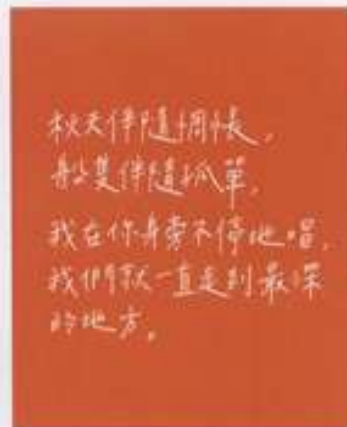 秋天伴隨惆悵，
船隻伴隨孤單，
我在你身旁不停地唱，
我們就一直走到最深
的地方。